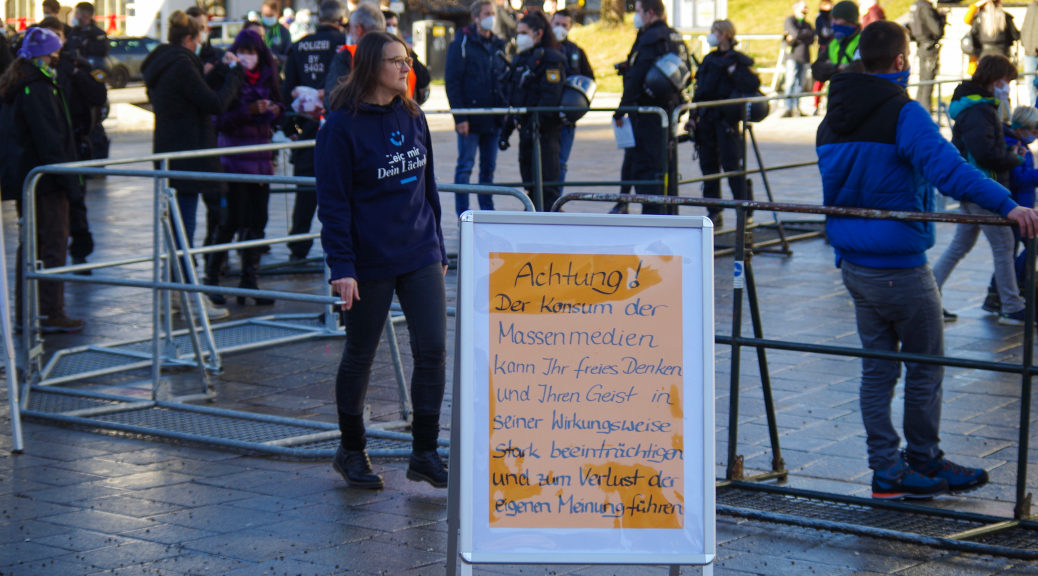 POLIZEI
BY
5402
Zeig mir
Dein Lächeln
Achtung!
Der Konsum der
Massenmedien
kann Ihr freies Denken
und Ihren Geist in
seiner Wirkungsweise
stark beeinträchtigen
und zum Verlust der
eigenen Meinung führen